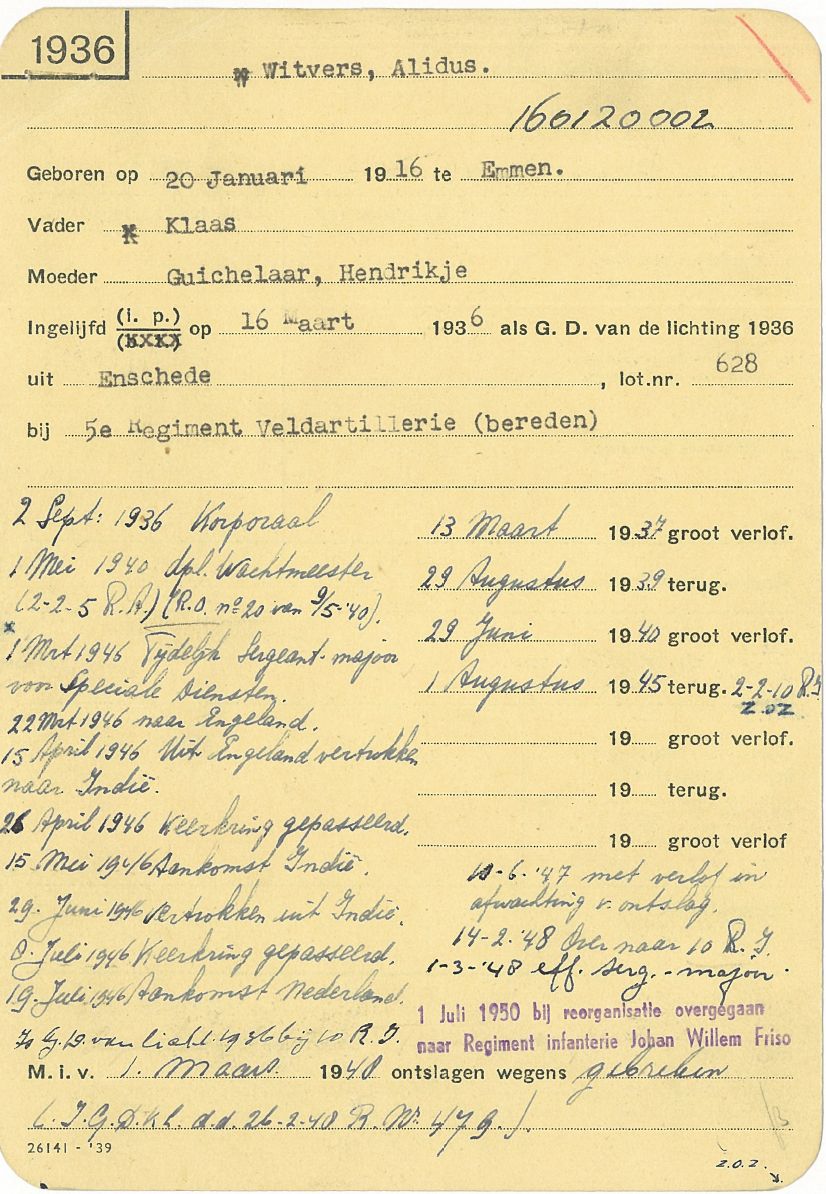 1936
Witvers, Alidus.
160120002
Geboren op 20 Januari 1916 te Emmen.
Vader Klaas
Moeder Guichelaar, Hendrikje
Ingelijfd (i. p.) (xxxx) op 16 Maart 1936 als G. D. van de lichting 1936
uit Enschede, lot.nr. 628
bij 5e Regiment Veldartillerie (bereden)
2 Sept: 1936 Korporaal
1 Mei 1940 dpl. Wachtmeester
(2-2-5 R.A.) (R.O. no 20 van 9/5-'40).
1 Mrt 1946 Tijdelijk Sergeant-majoor
voor Speciale Diensten.
22 Mrt 1946 naar Engeland.
15 April 1946 Uit Engeland vertrokken
naar Indië.
26 April 1946 Keerkring gepasseerd.
15 Mei 1946 Aankomst Indië.
29. Juni 1946 vertrokken uit Indië.
8. Juli 1946 Keerkring gepasseerd.
19. Juli 1946 Aankomst Nederland.
Is G.D. van licht. 1936 bij 10 R.I.
13 Maart 1937 groot verlof.
29 Augustus 1939 terug.
29 Juni 1940 groot verlof.
1 Augustus 1945 terug. 2-2-10 R.I
z.oz
19 groot verlof.
19 terug.
19 groot verlof
10-6-'47 met verlof in
afwachting v. ontslag.
14-2-'48 Over naar 10 R.I.
1-3-'48 eff. serg.-majoor.
1 Juli 1950 bij reorganisatie overgegaan
naar Regiment infanterie Johan Willem Friso
M.i.v. 1. Maart 1948 ontslagen wegens gebreken
(I.G.D.K.L. d.d. 26-2-48 R. Nr. 479.)
26141 - '39
z.o.z.